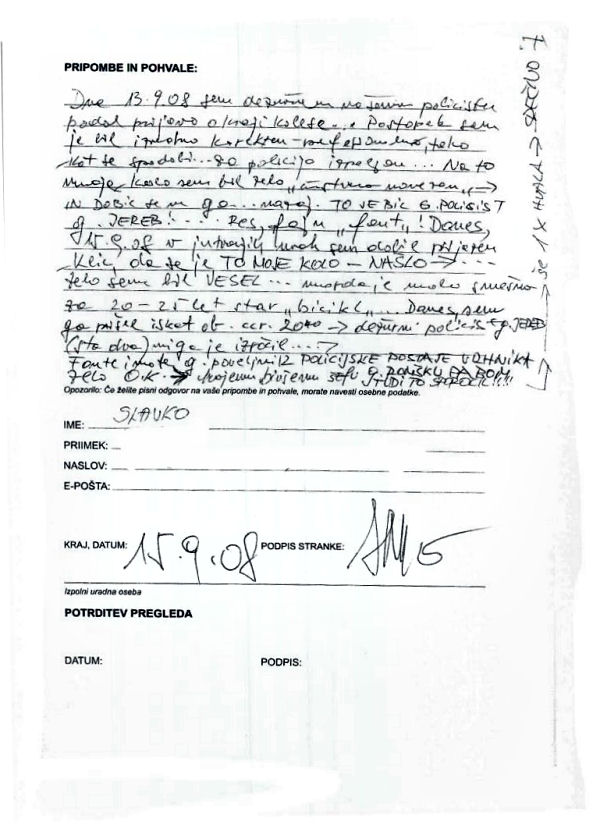 PRIPOMBE IN POHVALE:
Dne 13.9.08 sem dežurnemu policistu
podal prijavo o kraji kolesa... Postopek sem
je bil izredno korekten - profesionalno, tako
kot se spodobi... za policijo izpeljan... Na to
moje kolo sem bil zelo „čustveno navezan" →
IN DOBIL sem ga ... nazaj. TO VE BIL G. POLICIST
g. JEREB! ... Res, fajn „fant"! Danes,
15.9.08 v jutranjih urah sem dobil prijazen
klic, da se je TO MOJE KOLO - NAŠLO → ...
zelo sem bil VESEL ... morda je malo smešno
za 20-25 let star „bicikl" ... Danes sem
ga prišel iskat ob → dežurni policist g. JEREB
(sta dva) mi ga je izročil ... →
Fante imate g. poveljnik POLICIJSKE POSTAJE VRHNIKA
zelo O.K. → mojemu bivšemu šefu g. PA BOM
TUDI TO SPOROČIL!!!!
→ še 1X HVALA → SREČNO!
Opozorilo: Če želite pisni odgovor na vaše pripombe in pohvale, morate navesti osebne podatke.
IME: SLAVKO
PRIIMEK:
NASLOV:
E-POŠTA:
KRAJ, DATUM: 15.9.08 PODPIS STRANKE:
Izpolni uradna oseba
POTRDITEV PREGLEDA
DATUM: PODPIS: